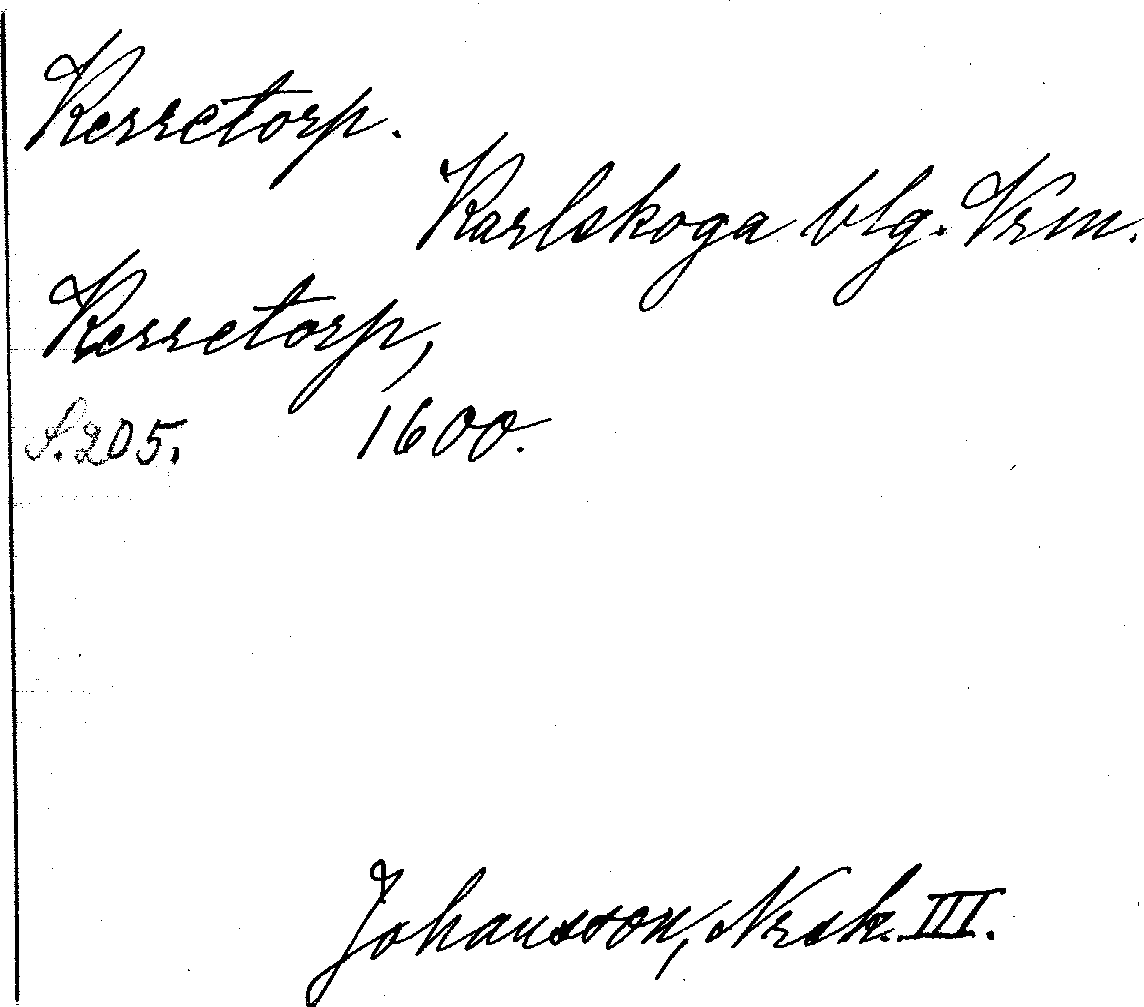 Kerretorp.
Karlskoga blg. Vrm.
Kerretorp,
S. 205. 1600.
Johansson, Nrsk. III.